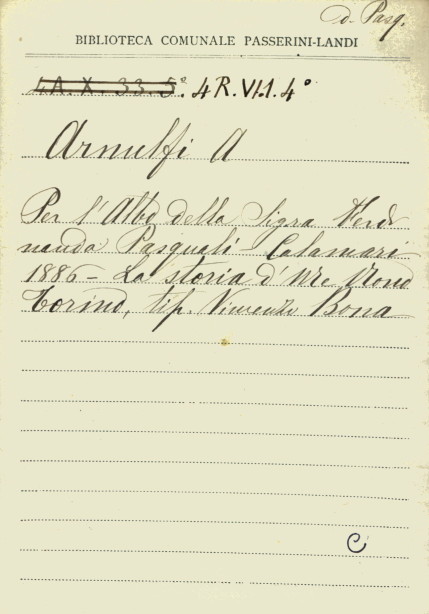 d. Pasq.
BIBLIOTECA COMUNALE PASSERINI-LANDI
4A. X. 33. 5°. 4 R. VI.1. 4°
Arnulfi A
Per l'Albo della Sigra Ferdi
nanda Pasquali - Calamari
1886 - La storia d'
Torino, tip. Vincenzo Bona
C